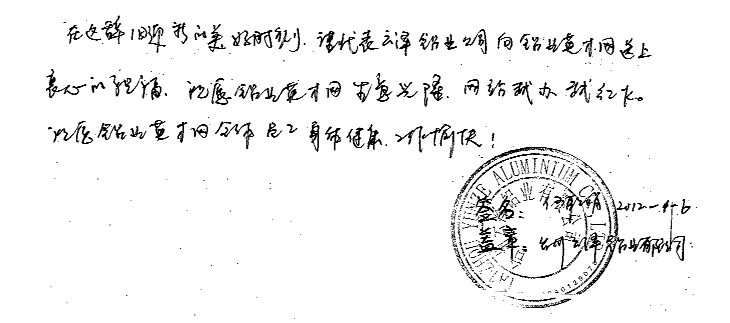 在这辞旧迎新的美好时刻，谨代表云泽铝业公司向铝业英才网送上
衷心的祝福，祝愿铝业英才网生意兴隆，网络越办越红火。
祝愿铝业英才网全体员工身体健康，工作愉快！
签名： 2012-4-6
盖章：台州云泽铝业有限公司
TAIZHOU YUNZE ALUMINIUM CO., LTD